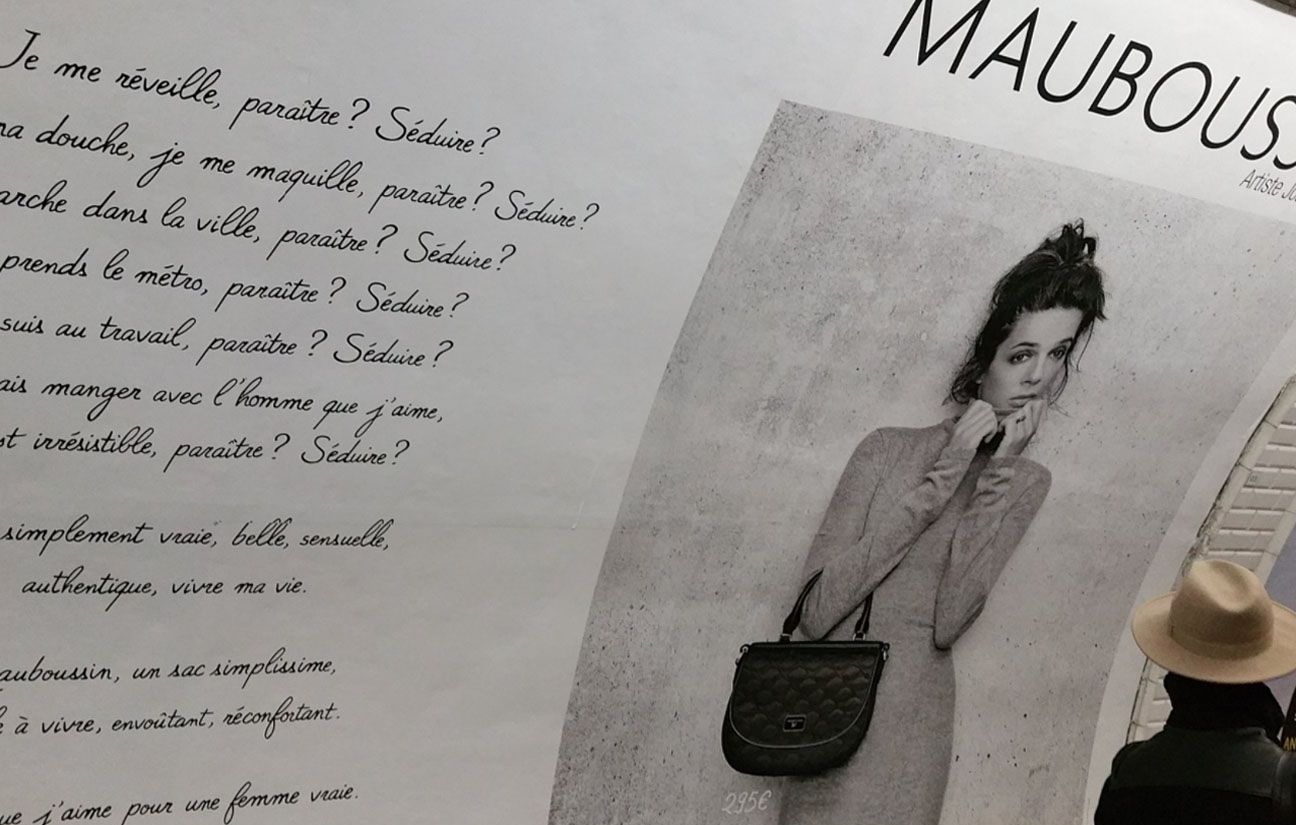 Je me réveille, paraître? Séduire?
douche, je me maquille, paraître? Séduire?
dans la ville, paraître? Séduire?
prends le métro, paraître? Séduire?
suis au travail, paraître? Séduire?
manger avec l'homme que j'aime,
irrésistible, paraître? Séduire?
simplement vraie, belle, sensuelle,
authentique, vivre ma vie.
auboussin, un sac simplissime,
à vivre, envoûtant, réconfortant.
j'aime pour une femme vraie.
MAUBOUSS
Artiste
295€